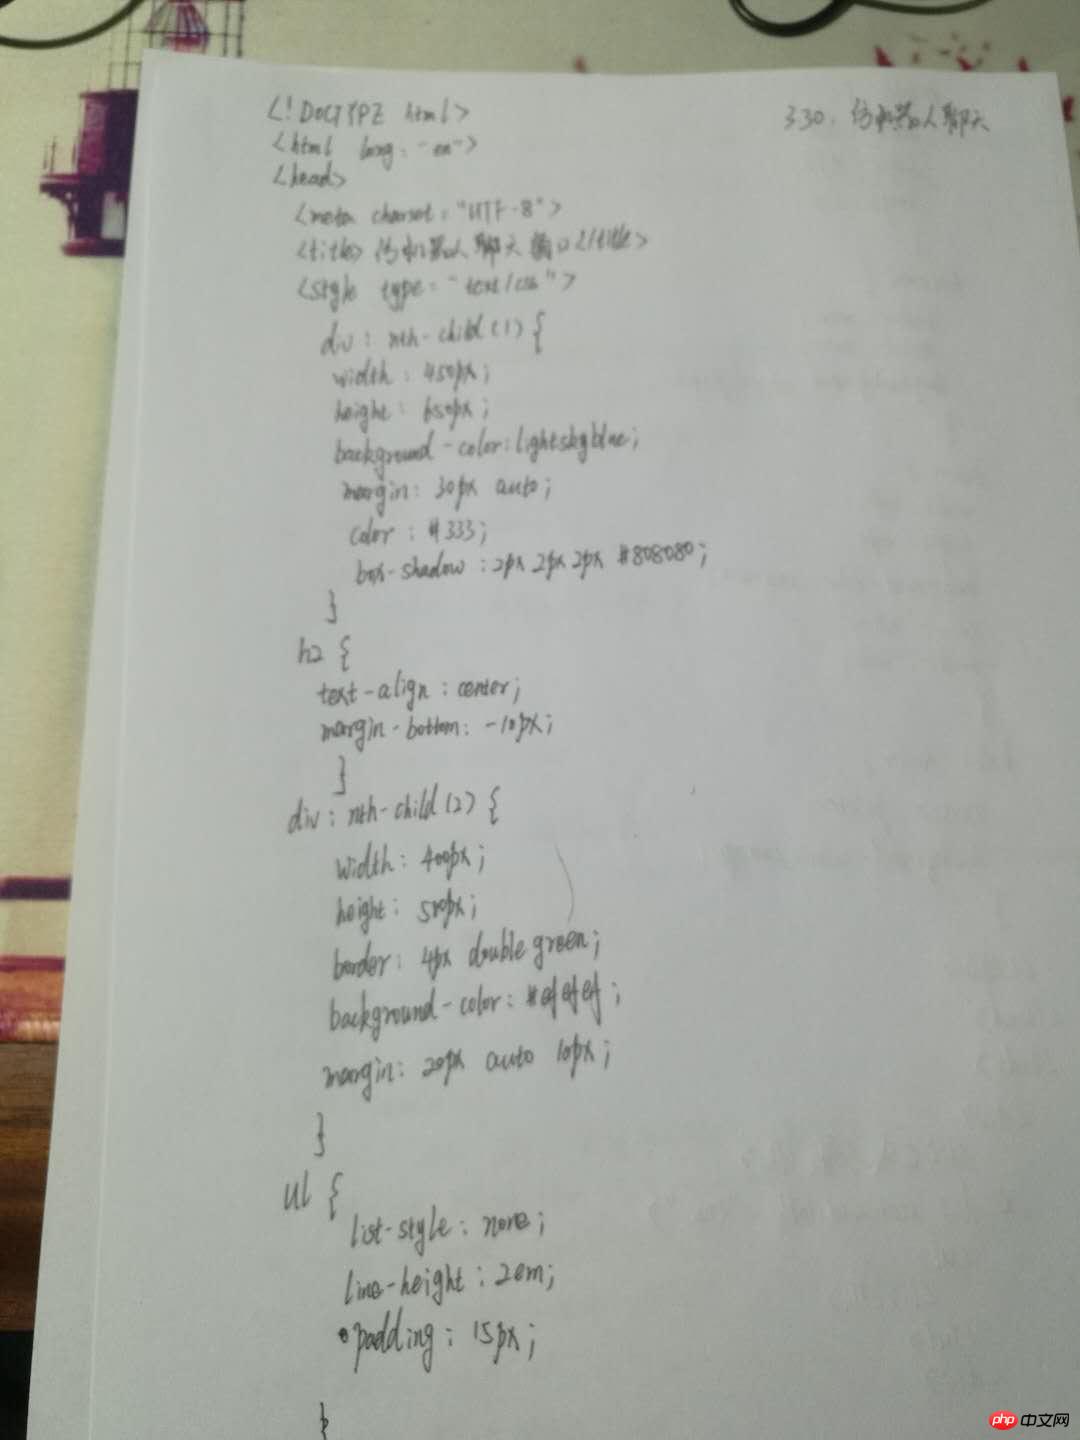 <!DOCTYPE html> 330. 仿机器人聊天
<html lang: "en">
<head>
<meta charset: "UTF-8">
<title>仿机器人聊天窗口</title>
<style type= "text/css">
div: nth-child(1) {
width: 450px;
height: 650px;
background-color: lightskyblue;
margin: 30px auto;
color: #333;
box-shadow: 2px 2px 2px #808080;
}
h2 {
text-align: center;
margin-bottom: -10px;
}
div: nth-child(2) {
width: 400px;
height: 500px;
border: 4px double green;
background-color: #efefef;
margin: 20px auto 10px;
}
ul {
list-style: none;
line-height: 2em;
padding: 15px;
}
php 中文网